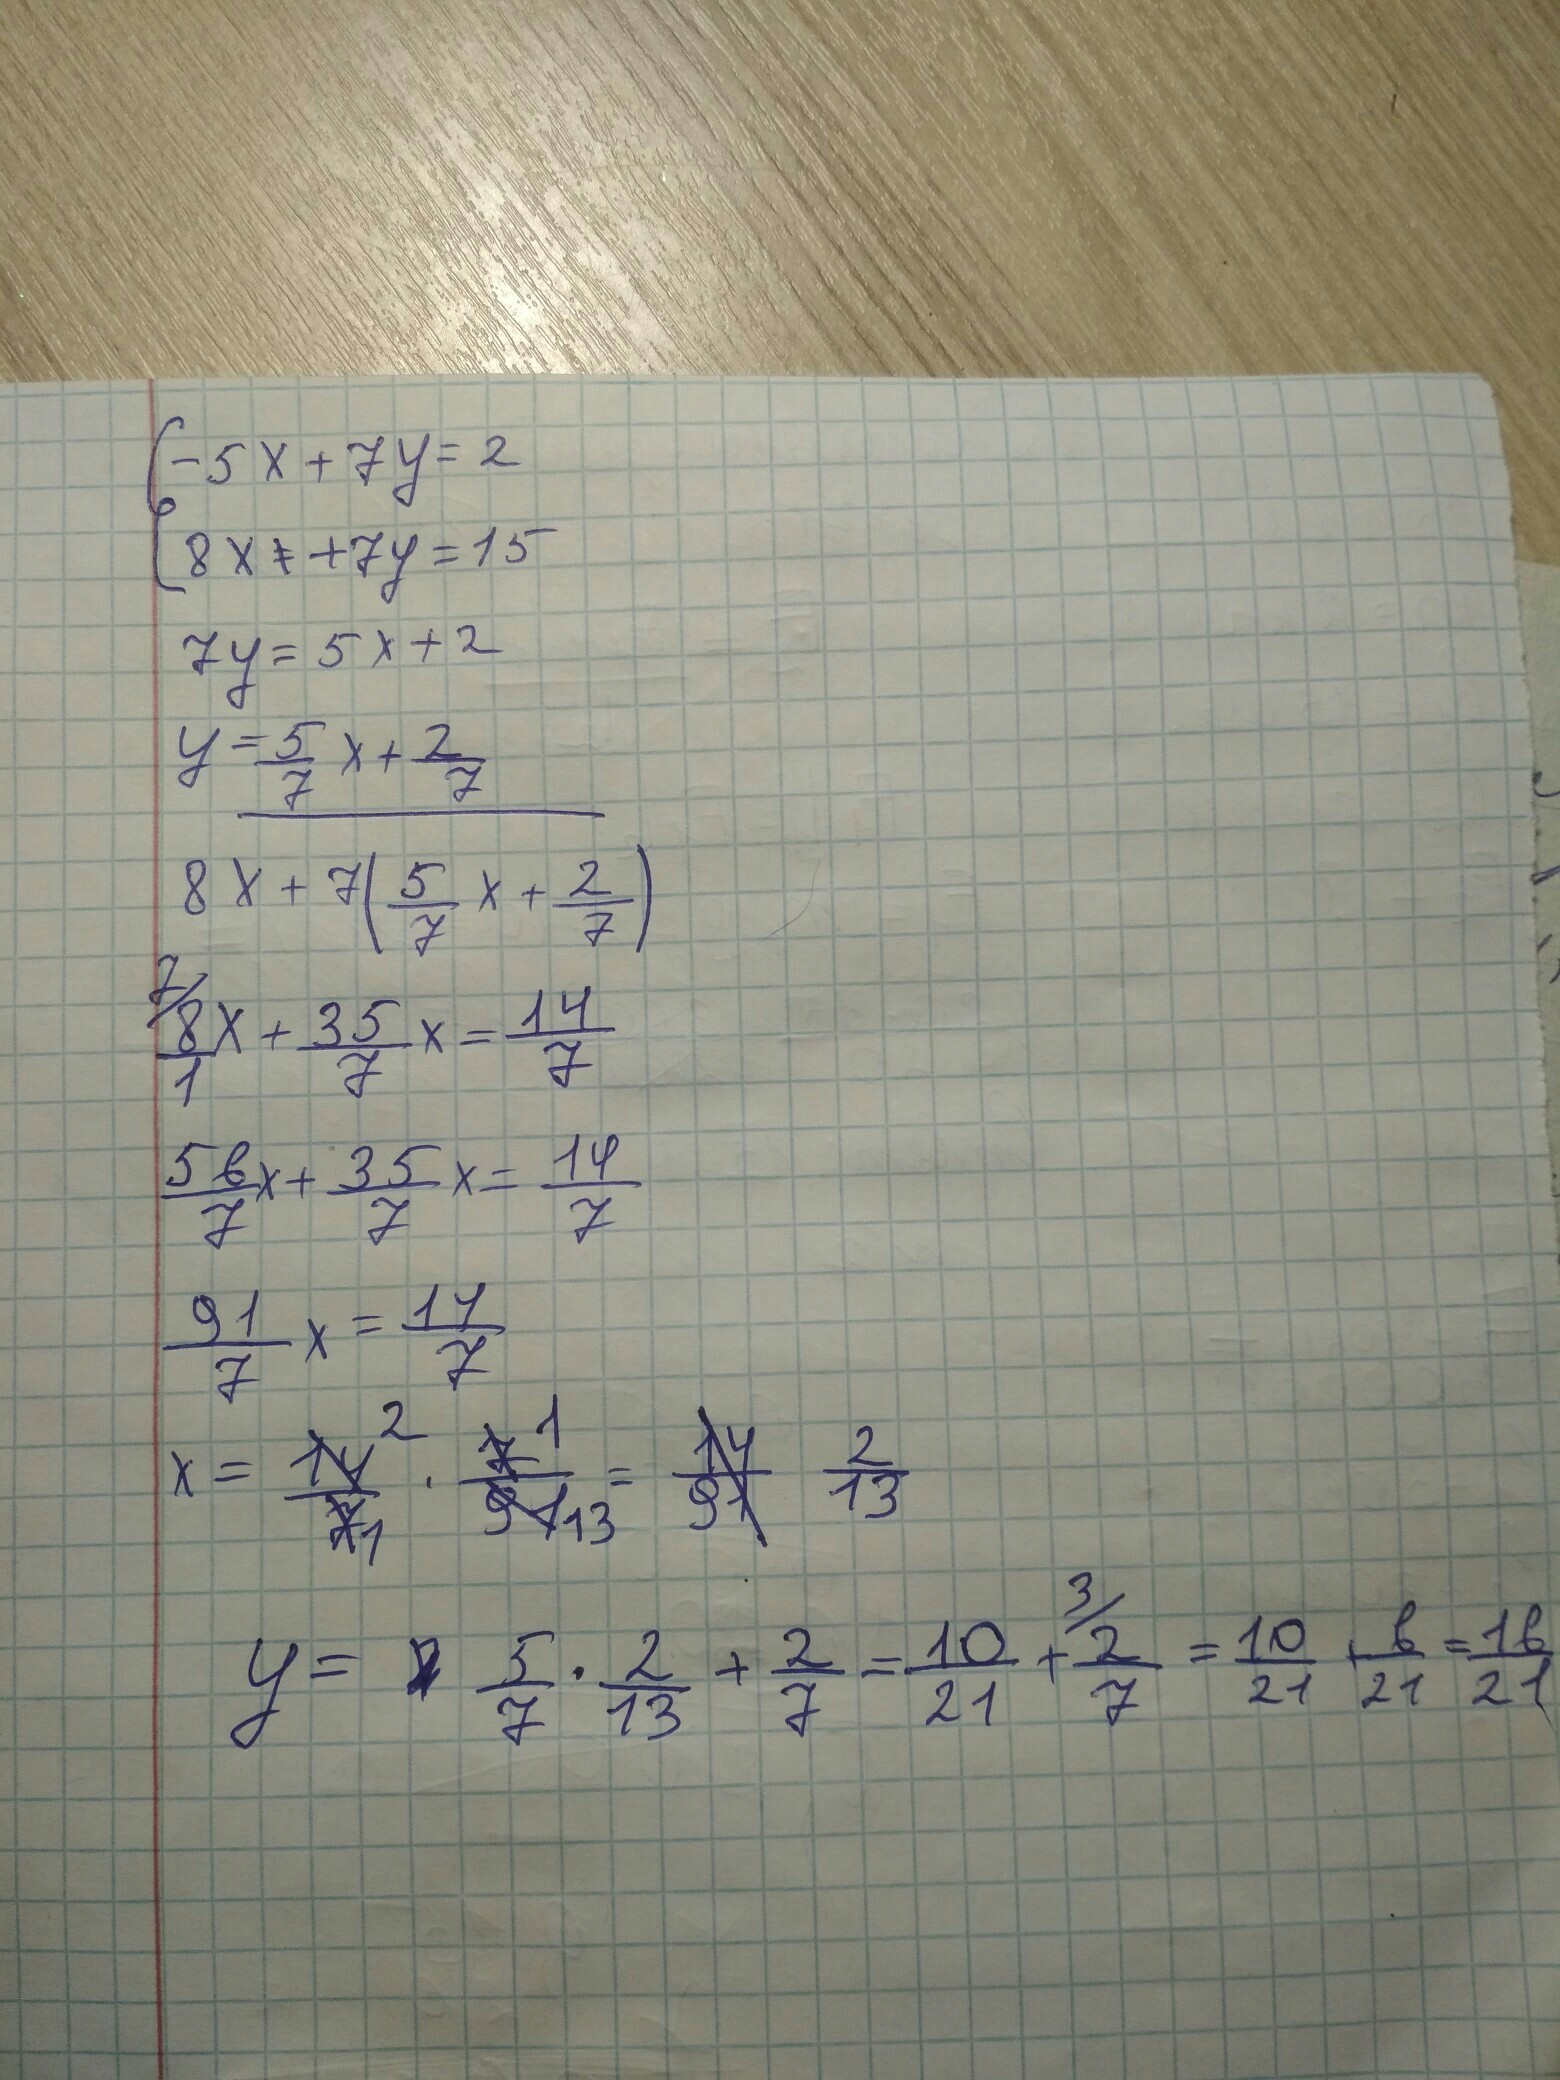 -5x+7y=2
8x+7y=15
7y=5x+2
y=5/7 x+2/7
8x+7(5/7 x+2/7)
7/ 8/1 x+35/7 x=14/7
56/7 x+35/7 x=14/7
91/7 x=14/7
x=14/7 2 1 · 7/91 1 13 = 14/91 2/13
y= 5/7 · 2/13 + 2/7 = 10/21 + 3/ 2/7 = 10/21 + 6/21 = 16/21